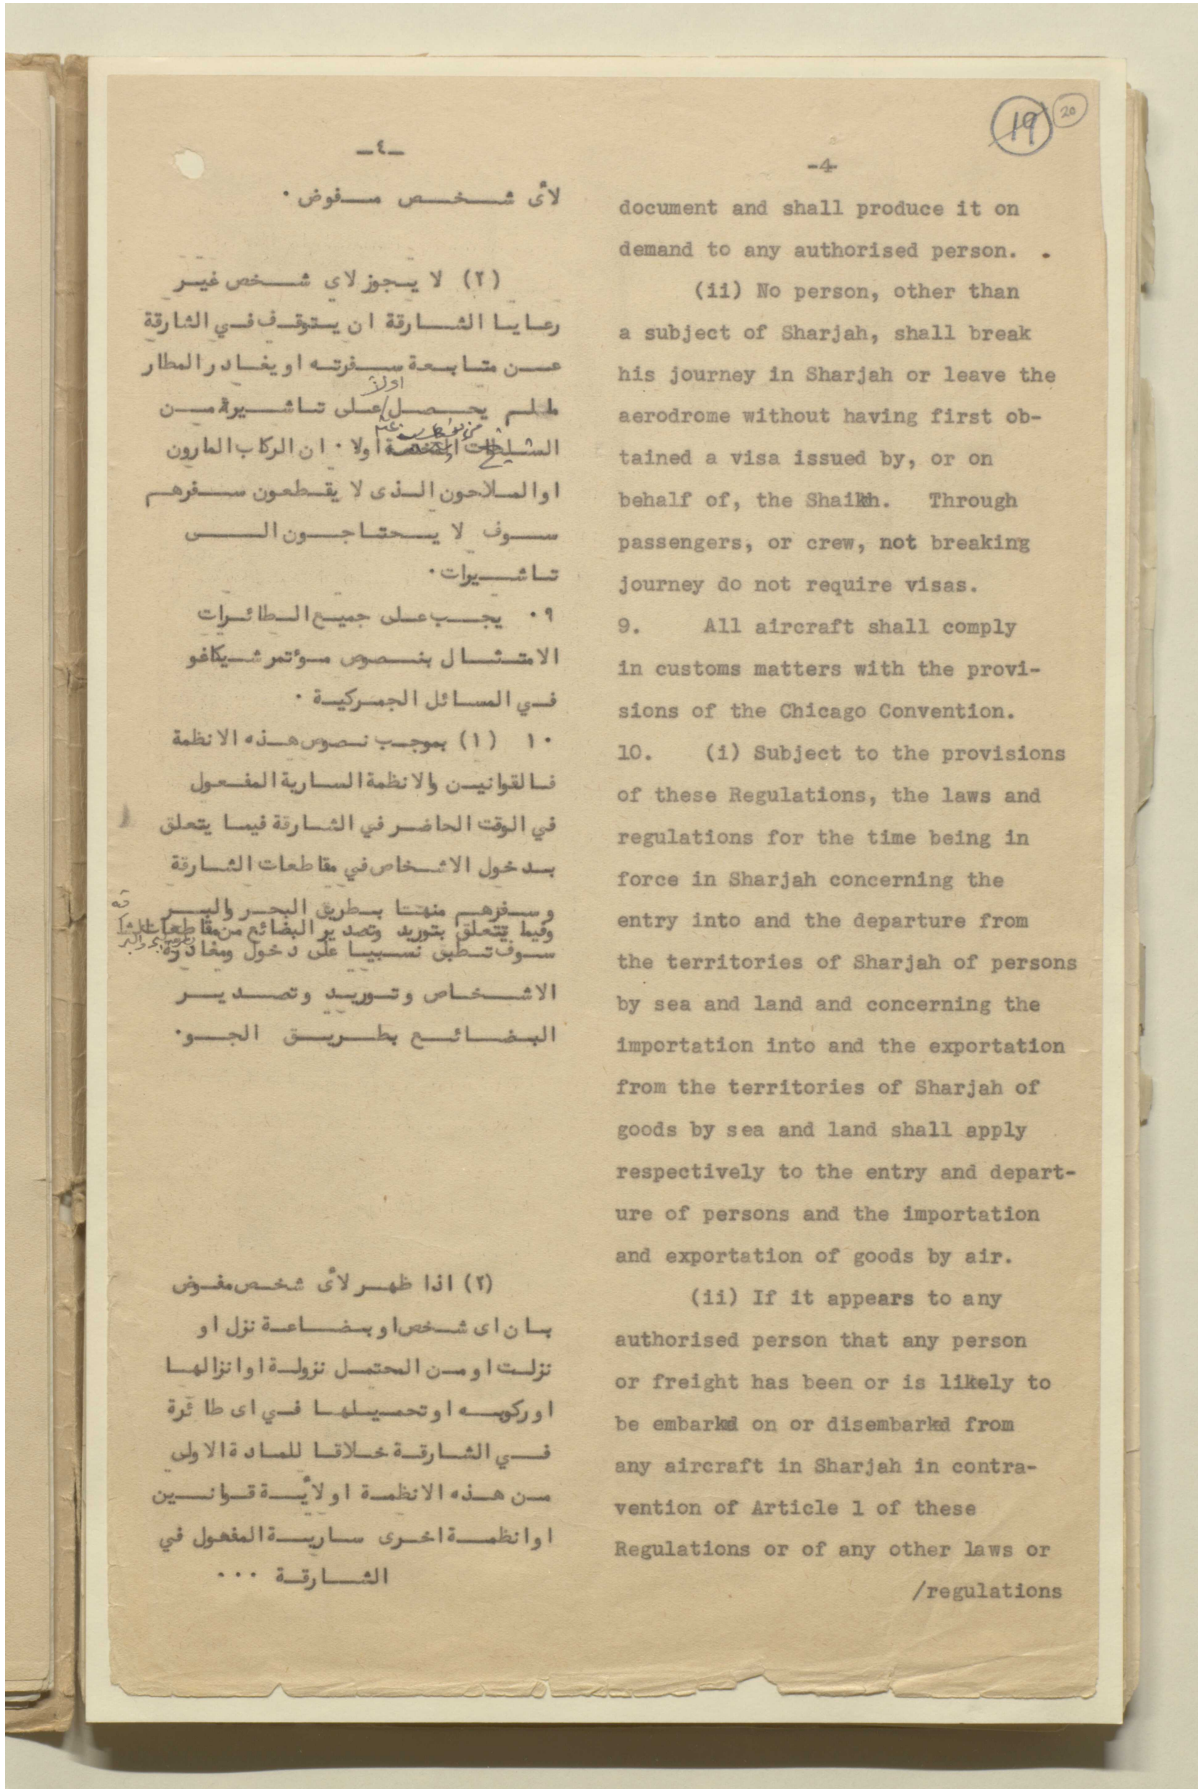 19
20
-4-
document and shall produce it on
demand to any authorised person. .
(ii) No person, other than
a subject of Sharjah, shall break
his journey in Sharjah or leave the
aerodrome without having first ob-
tained a visa issued by, or on
behalf of, the Shaikh. Through
passengers, or crew, not breaking
journey do not require visas.
9. All aircraft shall comply
in customs matters with the provi-
sions of the Chicago Convention.
10. (i) Subject to the provisions
of these Regulations, the laws and
regulations for the time being in
force in Sharjah concerning the
entry into and the departure from
the territories of Sharjah of persons
by sea and land and concerning the
importation into and the exportation
from the territories of Sharjah of
goods by sea and land shall apply
respectively to the entry and depart-
ure of persons and the importation
and exportation of goods by air.
(ii) If it appears to any
authorised person that any person
or freight has been or is likely to
be embarked on or disembarked from
any aircraft in Sharjah in contra-
vention of Article 1 of these
Regulations or of any other laws or
/regulations
-٤-
لأى شخص مفوض ٠
(٢) لا يجوز لاي شخص غير
رعايا الشارقة ان يتوقف في الشارقة
عن متابعة سفرته او يغادر المطار
اولا
ملم يحصل/على تاشيرة من
اولا ٠ ان الركاب المارون
او الملاحون الذى لا يقطعون سفرهم
سوف لا يحتاجون الى
تاشيرات ٠
٩ ٠ يجب على جميع الطائرات
الامتثال بنصوص مؤتمر شيكاغو
في المسائل الجمركية ٠
١٠ (١) بموجب نصوص هذه الانظمة
فالقوانين والانظمة السارية المفعول
في الوقت الحاضر في الشارقة فيما يتعلق
بدخول الاشخاص في مقاطعات الشارقة
وسفرهم منها بطريق البحر والبر
وفيما يتعلق بتوريد وتصدير البضائع من مقاطعات الشارقة
سوف تطبق نسبيا على دخول ومغادرة
الاشخاص وتوريد وتصدير
البضائع بطريق الجو ٠
(٢) اذا ظهر لأى شخص مفوض
بان اى شخص او بضاعة نزل او
نزلت او من المحتمل نزولة او انزالها
او ركوبه او تحميلها في اى طائرة
في الشارقة خلاقا للمادة الاولى
من هذه الانظمة او لأية قوانين
او انظمة اخرى سارية المفعول في
الشارقة ٠٠٠